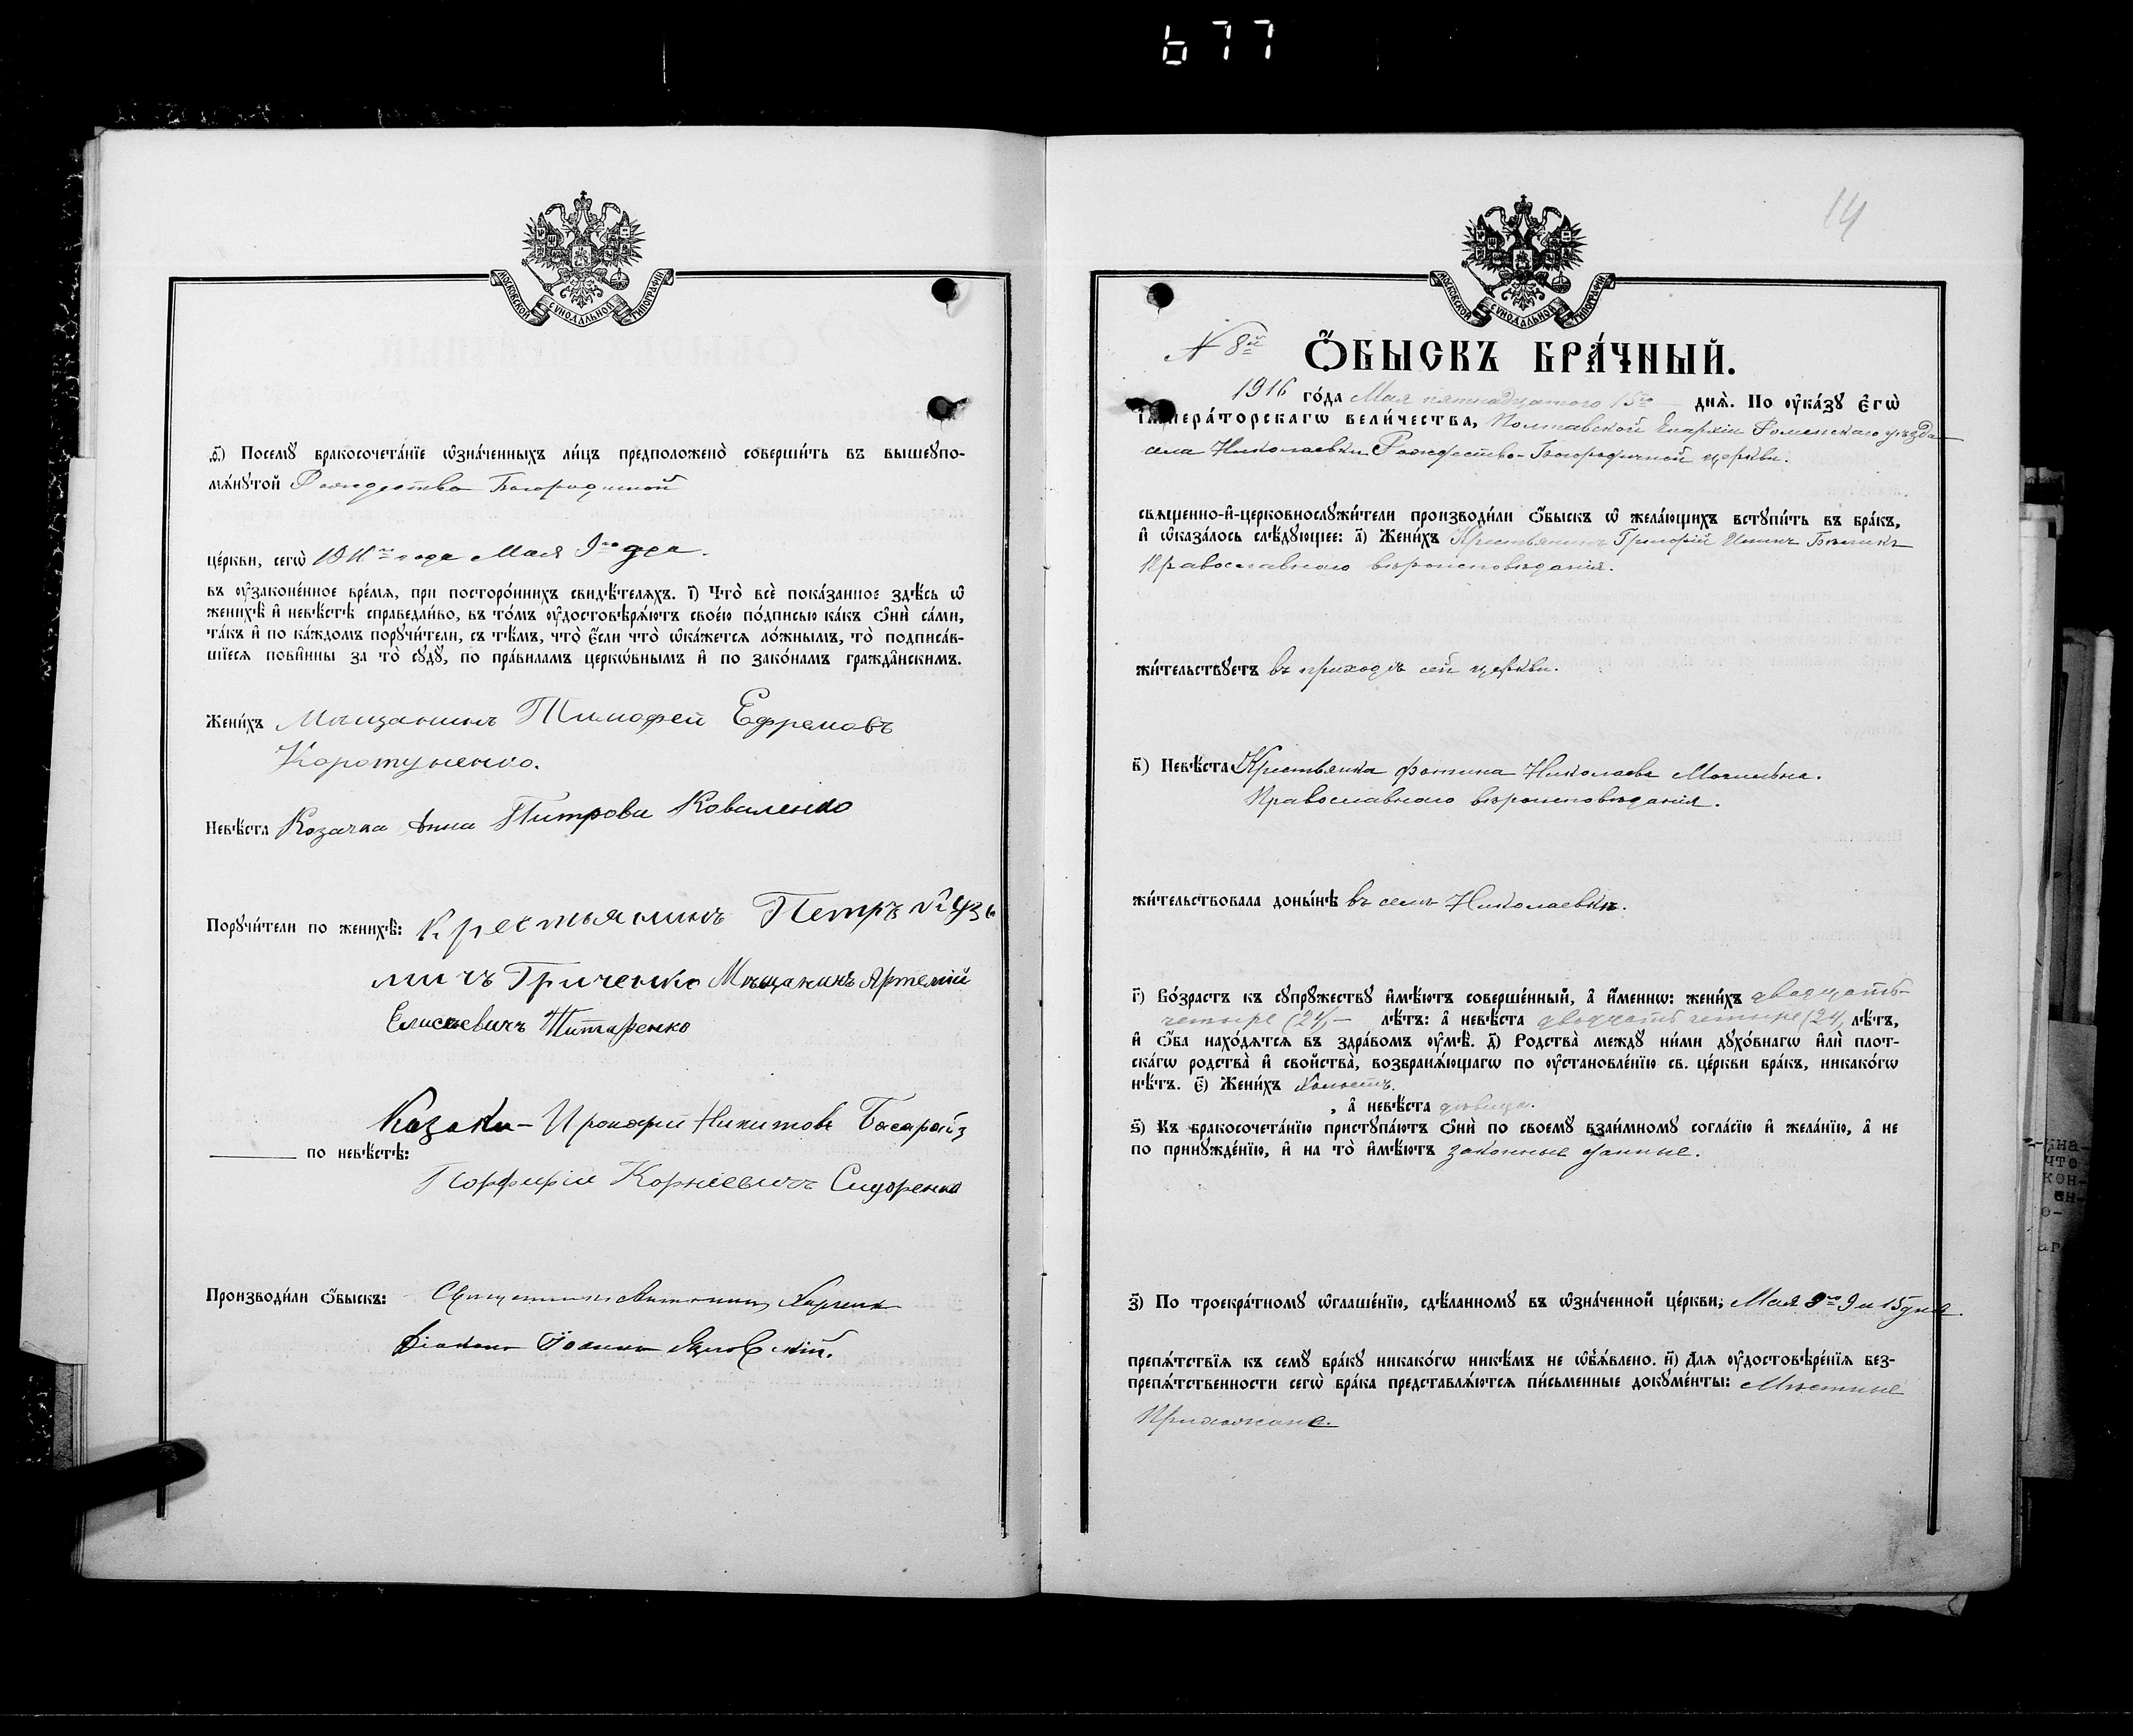 677
МОСКОВСКОЙ СѴНОДАЛЬНОЙ ТИПОГРАФІИ
ѳ҃) Посемꙋ бракосочета́нїе ѡ҆зна́ченныхъ ли́цъ предположено̀ соверши́ть въ вышеꙋпо-
мѧ́нꙋтой Рождество Богородичной
це́ркви, сегѡ̀ года Мая 9го дня.
въ ᲂу҆законе́нное вре́мѧ, при посторо́ннихъ свидѣ́телѧхъ. і҃) Что̀ всѐ пока́занное здѣ́сь ѡ҆
женихѣ̀ и҆ невѣ́стѣ справедли́во, въ то́мъ ᲂу҆достовѣрѧ́ютъ свое́ю по́дписью ка́къ ѻ҆нѝ са́ми,
та́къ и҆ по ка́ждомъ порꙋчи́тели, съ тѣ́мъ, что̀ є҆́сли что̀ ѡ҆ка́жетсѧ ло́жнымъ, то̀ подписа́в-
шїесѧ пови́нны за то̀ сꙋдꙋ̀, по пра́виламъ церко́внымъ и҆ по зако́намъ гражда́нскимъ.
Жени́хъ Мѣщанинъ Тимофей Ефремовъ
Коротуненко.
Невѣ́ста Козачка Анна Питрова Коваленко
Порꙋчи́тели по женихѣ̀: Крестьянинъ Петръ Кузь
мичъ Гриченко Мѣщанинъ Артемій
Елисѣевичъ Титаренко
Казаки – Никитовъ
по невѣ́стѣ:
Порфирій Корніевичъ Сидоренко
Производи́ли ѻ҆́быскъ: Священникъ
Діаконъ Іоаннъ
14
МОСКОВСКОЙ СѴНОДАЛЬНОЙ ТИПОГРАФІИ
N 8й
Ѻ҆́БЫСКЪ БРА́ЧНЫЙ.
1916 го́да Мая пятнадцатого 15го днѧ̀. По ᲂу҆ка́зꙋ є҆гѡ̀
і҆мпера́торскагѡ вели́чества, Полтавской Епархіи Роменскаго уѣзда
села Николаевки Рождество-Богородичной церкви.
свѧщенно-и҆-церковнослꙋжи́тели производи́ли ѻ҆́быскъ ѡ҆ жела́ющихъ встꙋпи́ть въ бра́къ,
и҆ ѡ҆каза́лось слѣ́дꙋющее: а҃) Жени́хъ Крестьянинъ Григорій
Православнаго вѣроисповѣданія.
жи́тельствꙋетъ въ приходѣ сей церкви.
в҃) Невѣ́ста Крестьянка Фотина Николаева
Православнаго вѣроисповѣданія.
жи́тельствовала доны́нѣ въ селѣ Николаевкѣ.
г҃) Во́зрастъ къ сꙋпрꙋ́жествꙋ и҆мѣ́ютъ соверше́нный, а҆ и҆́менно: жени́хъ двадцать-
четыре (24) – лѣ́тъ: а҆ невѣ́ста двадцать четыре (24) лѣ́тъ,
и҆ ѻ҆́ба нахо́дѧтсѧ въ здра́вомъ ᲂу҆мѣ̀. д҃) Родства̀ междꙋ̀ ни́ми дꙋхо́внагѡ и҆лѝ плот-
ска́гѡ родства̀ и҆ сво́йства, возбранѧ́ющагѡ по ᲂу҆становле́нїю св. це́ркви бра́къ, никако́гѡ
нѣ́тъ. є҃) Жени́хъ холостъ.
, а҆ невѣ́ста дѣвица.
ѕ҃) Къ бракосочета́нїю пристꙋпа́ютъ ѻ҆нѝ по своемꙋ̀ взаи́мномꙋ согла́сїю и҆ жела́нїю, а҆ не
по принꙋжде́нїю, и҆ на то̀ и҆мѣ́ютъ законные данные.
з҃) По троекра́тномꙋ ѡ҆глаше́нїю, сдѣ́ланномꙋ въ ѡ҆зна́ченной це́ркви, Мая 8го 9 и 15 дня.
препѧ́тствїѧ къ семꙋ̀ бра́кꙋ никако́гѡ никѣ́мъ не ѡ҆б̾ѧ́влено. и҃) Длѧ ᲂу҆достовѣре́нїѧ без-
препѧ́тственности сегѡ̀ бра́ка представлѧ́ютсѧ пи́сьменные докꙋме́нты: Мѣстные
Прихожане.